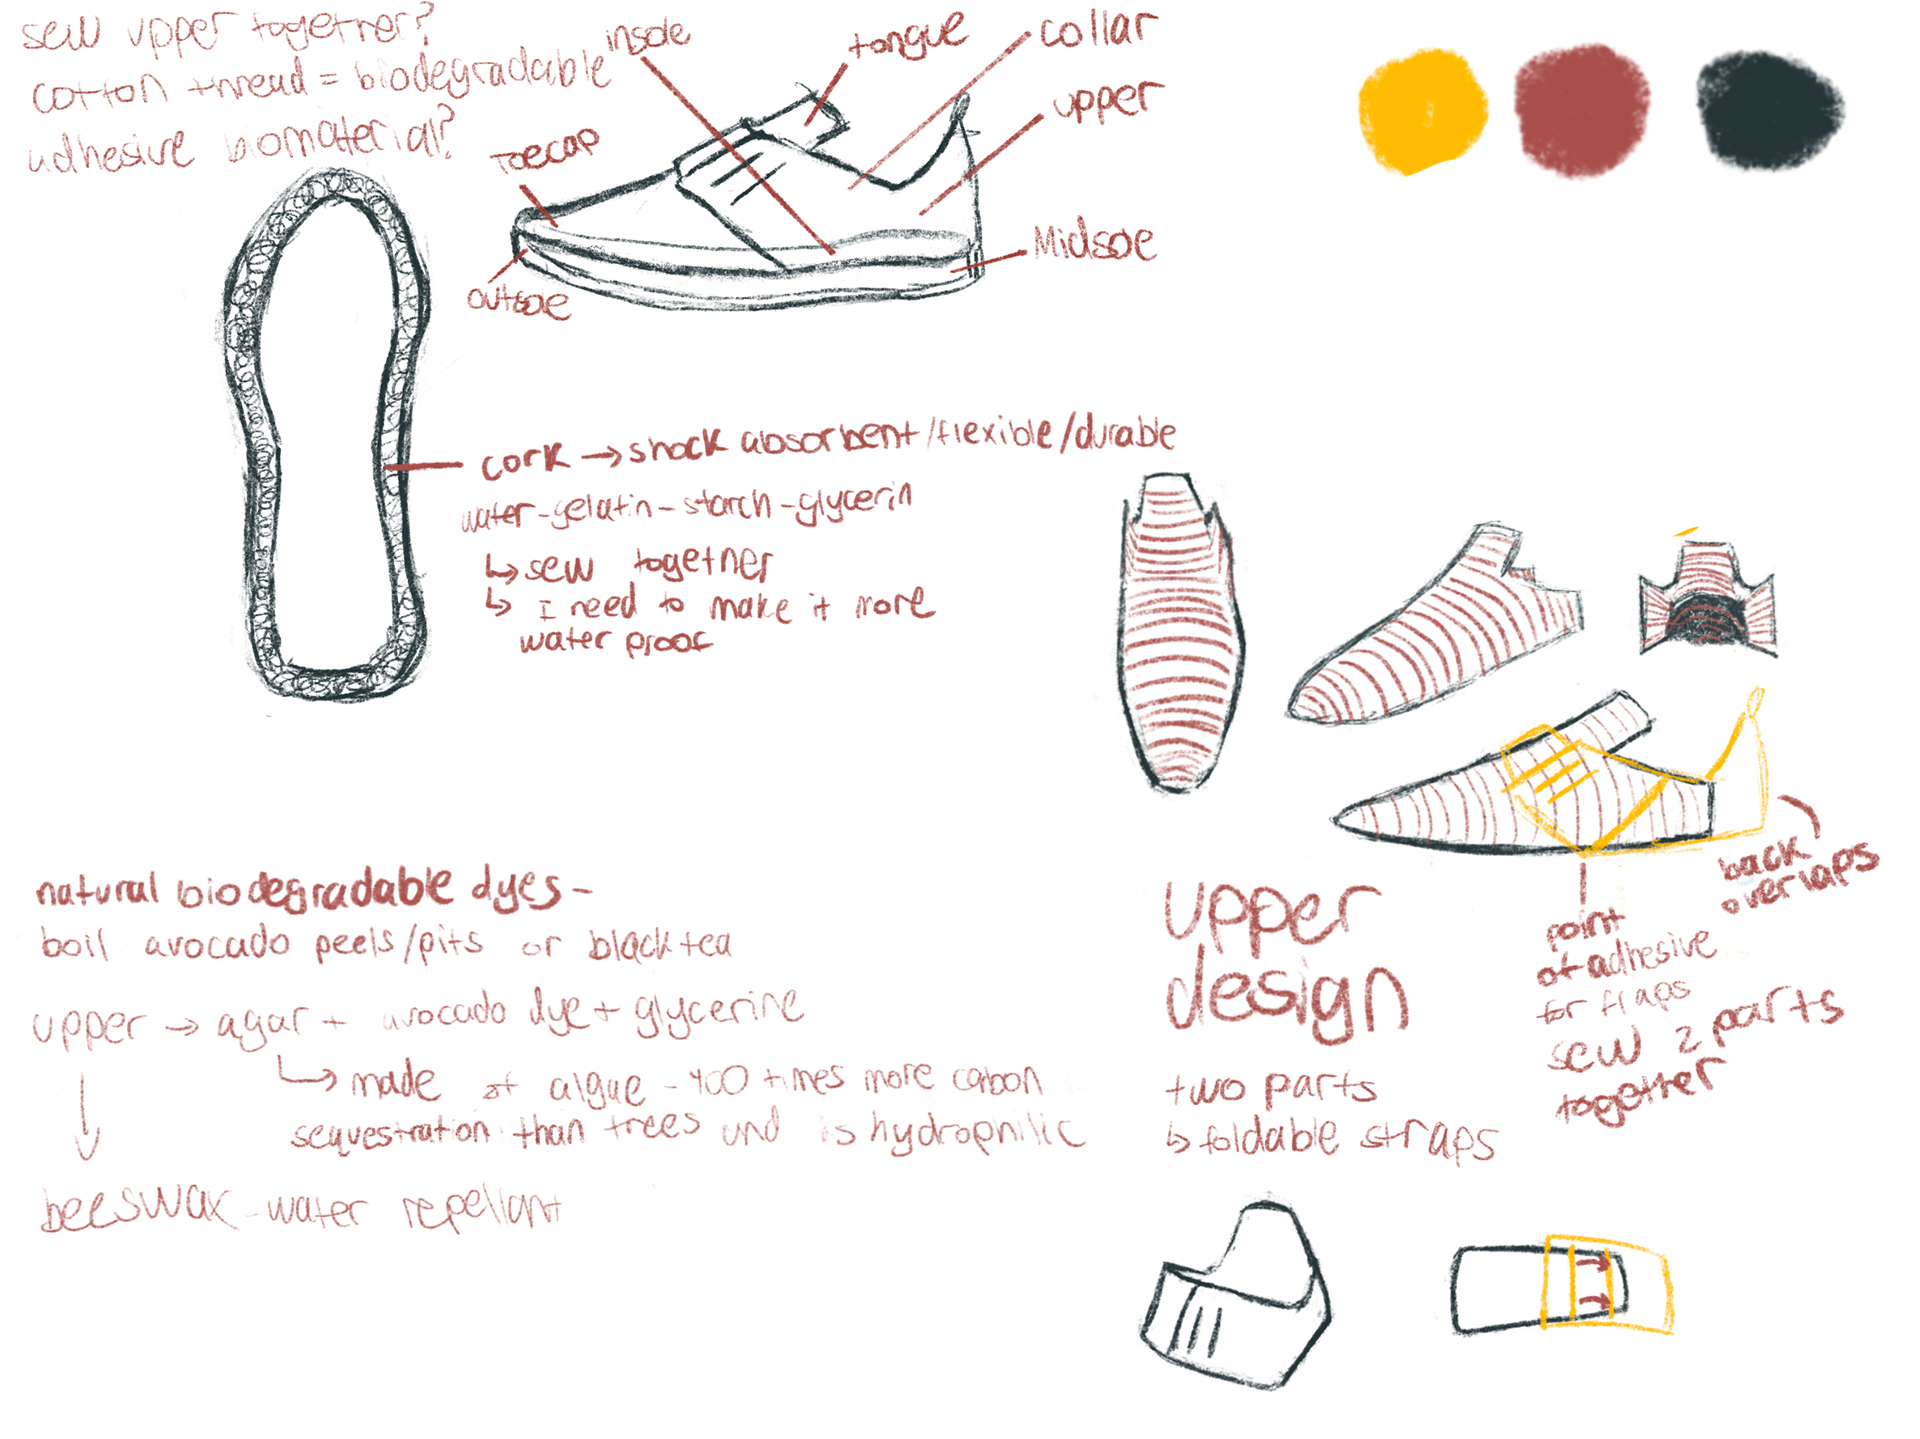 sew upper together?
cotton thread = biodegradable
adhesive biomaterial?
insole
tongue
collar
upper
toecap
Midsoe
outsoe
cork → shock absorbent/flexible/durable
water-gelatin-starch-glycerin
↳ sew together
↳ I need to make it more
water proof
natural biodegradable dyes-
boil avocado peels/pits or black tea
upper → agar + avocado dye + glycerine
↳ made of algue - 400 times more carbon
sequestration than trees and is hydrophilic
beeswax - water repellant
back
overlaps
point
of adhesive
for flaps
sew 2 parts
together
upper
design
two parts
↳ foldable straps